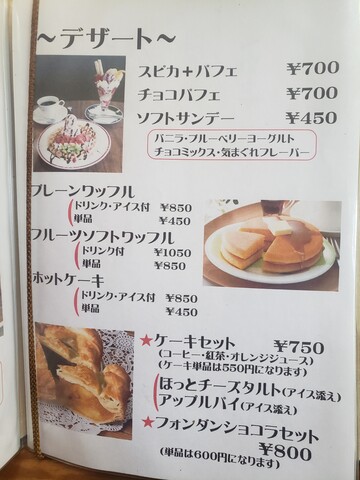 ～デザート～
スピカ+パフェ ¥700
チョコパフェ ¥700
ソフトサンデー ¥450
バニラ・ブルーベリーヨーグルト
チョコミックス・気まぐれフレーバー
プレーンワッフル
ドリンク・アイス付 ¥850
単品 ¥450
フルーツソフトワッフル
ドリンク付 ¥1050
単品 ¥850
ホットケーキ
ドリンク・アイス付 ¥850
単品 ¥450
★ケーキセット ¥750
(コーヒー・紅茶・オレンジジュース)
(ケーキ単品は550円になります)
ほっとチーズタルト(アイス添え)
アップルパイ(アイス添え)
★フォンダンショコラセット
¥800
(単品は600円になります)